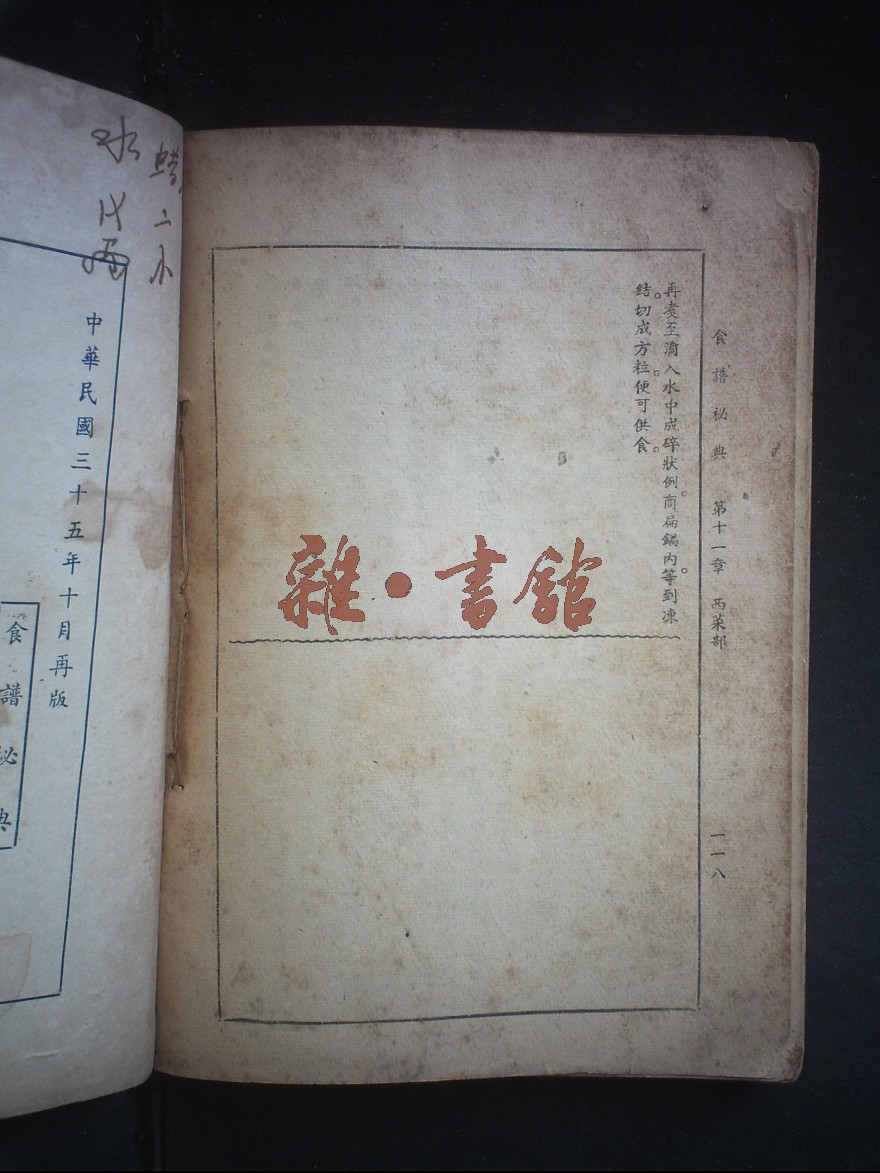 食譜祕典 第十一章 西菜部 一一八
再煑至滴入水中成碎狀。例商扁鍋內。等到凍
結。切成方粒。便可供食。
雜·書館
中華民國三十五年十月再版
食譜祕典